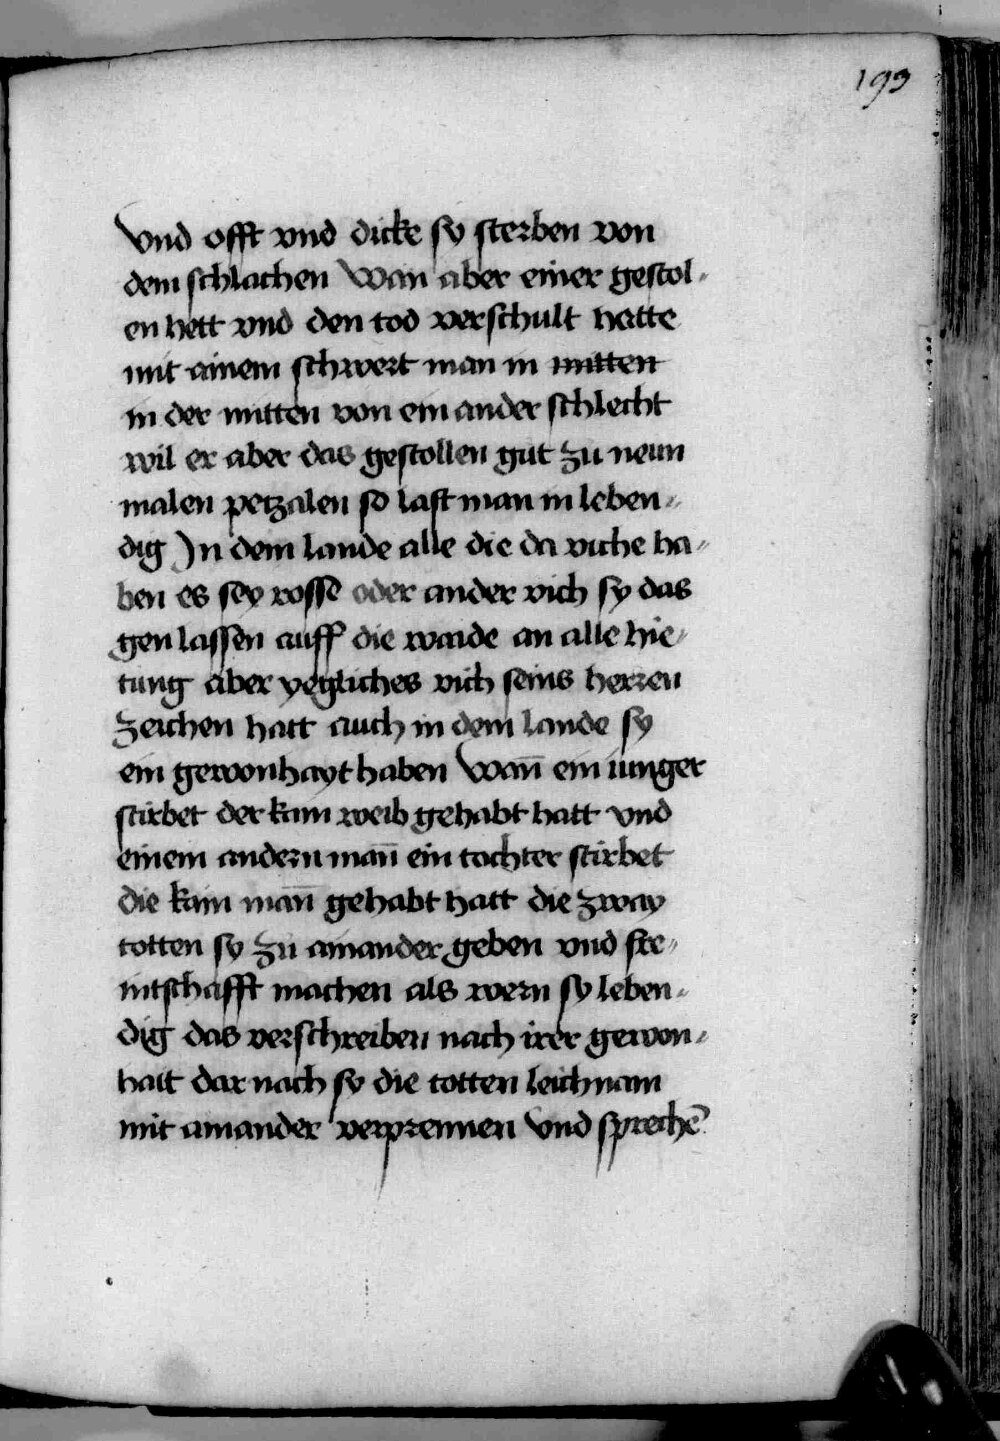 193
Vnd offt vnd dicke sy sterben von
dem schlachen Wan aber einer gestol-
en hett vnd den tod verschult hatte
mit ainem schwert man in mitten
in der mitten von ein ander schlecht
wil er aber das gestollen gut zu neun
malen petzalen so last man in leben-
dig In dem lande alle die da viche ha-
ben es sey rosse oder ander vich sy das
gen lassen auff die waide an alle hie-
tung aber yegliches vich seins herren
zeichen hatt auch in dem lande sy
ein gewonhayt haben Wan̄ ein iunger
stirbet der kain weib gehabt hatt vnd
einem andern man̄ ein tochter stirbet
die kain man̄ gehabt hatt die zway
totten sy zu ainander geben vnd fre-
intschafft machen als wern sy leben-
dig das verschreiben nach irer gewon-
hait dar nach sy die totten leichnam
mit ainander verprennen Vnd sprechē